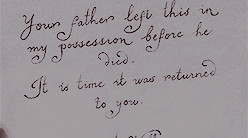 Your father left this in
my possession before he
died.
It is time it was returned
to you.